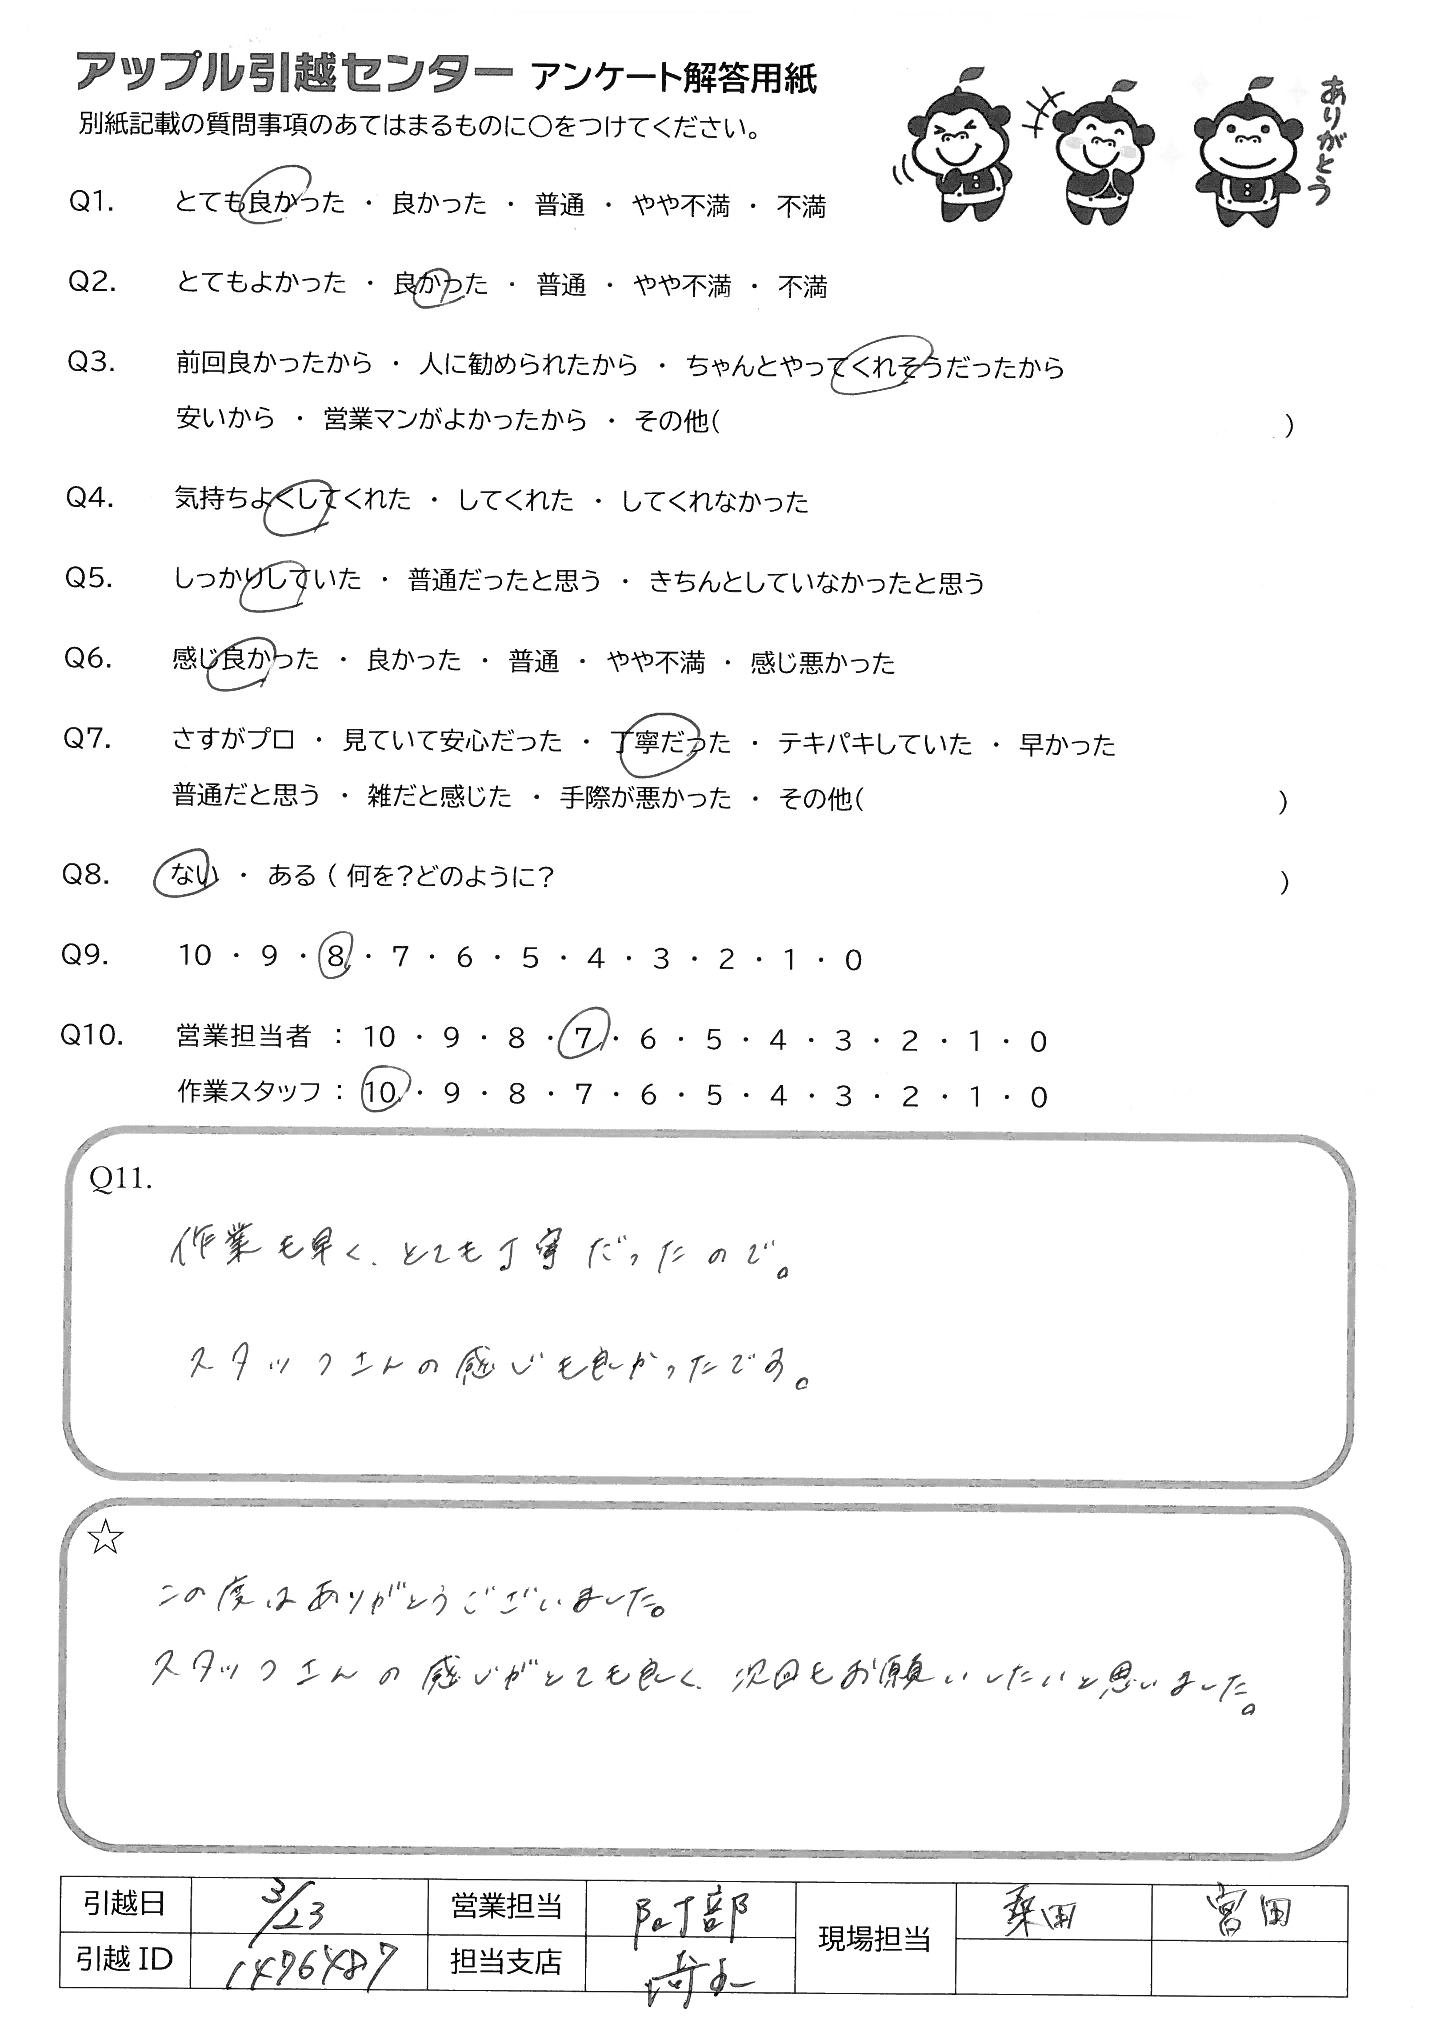 アップル引越センター アンケート解答用紙
別紙記載の質問事項のあてはまるものに○をつけてください。
ありがとう
Q1. とても良かった ・ 良かった ・ 普通 ・ やや不満 ・ 不満
Q2. とてもよかった ・ 良かった ・ 普通 ・ やや不満 ・ 不満
Q3. 前回良かったから ・ 人に勧められたから ・ ちゃんとやってくれそうだったから
安いから ・ 営業マンがよかったから ・ その他( )
Q4. 気持ちよくしてくれた ・ してくれた ・ してくれなかった
Q5. しっかりしていた ・ 普通だったと思う ・ きちんとしていなかったと思う
Q6. 感じ良かった ・ 良かった ・ 普通 ・ やや不満 ・ 感じ悪かった
Q7. さすがプロ ・ 見ていて安心だった ・ 丁寧だった ・ テキパキしていた ・ 早かった
普通だと思う ・ 雑だと感じた ・ 手際が悪かった ・ その他( )
Q8. ない ・ ある ( 何を?どのように? )
Q9. 10 ・ 9 ・ 8 ・ 7 ・ 6 ・ 5 ・ 4 ・ 3 ・ 2 ・ 1 ・ 0
Q10. 営業担当者 : 10 ・ 9 ・ 8 ・ 7 ・ 6 ・ 5 ・ 4 ・ 3 ・ 2 ・ 1 ・ 0
作業スタッフ : 10 ・ 9 ・ 8 ・ 7 ・ 6 ・ 5 ・ 4 ・ 3 ・ 2 ・ 1 ・ 0
Q11.
作業も早く、とても丁寧だったので。
スタッフさんの感じも良かったです。
☆
この度はありがとうございました。
スタッフさんの感じがとても良く、次回もお願いしたいと思いました。
引越日 3/23 営業担当 阿部 現場担当 桑田 宮田
引越ID 1476487 担当支店 埼玉